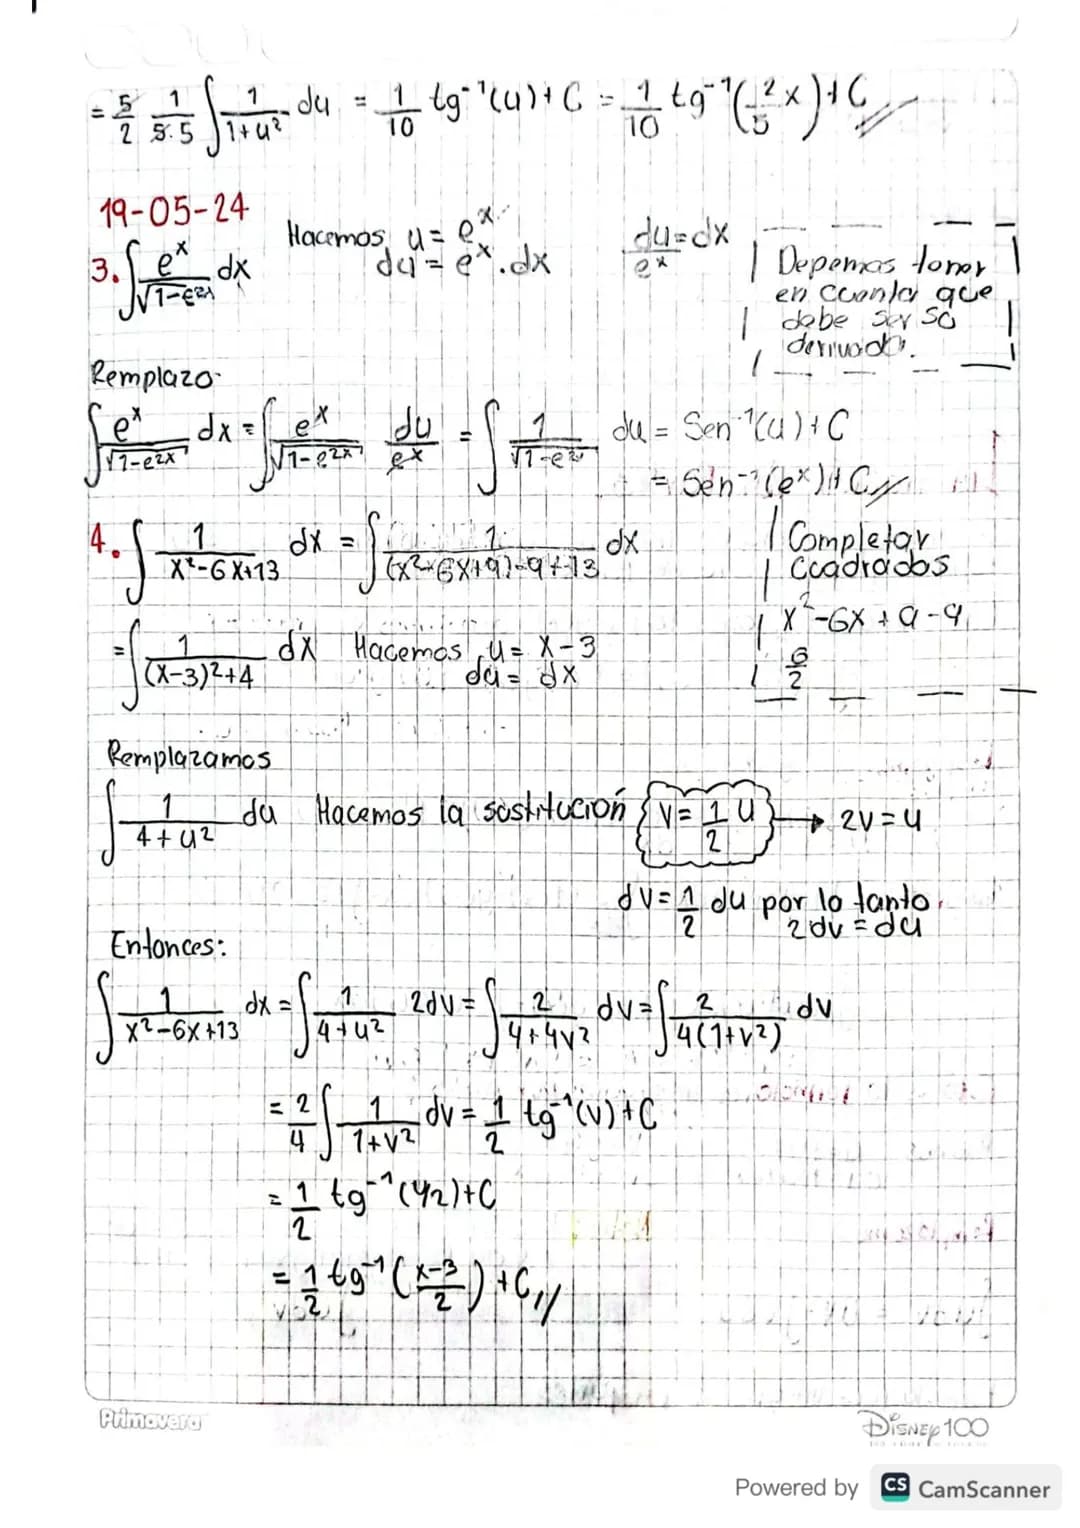 = 5/2 1/5.5 ∫ 1/(1+u²) du = 1/10 tg⁻¹(u)+C = 1/10 tg⁻¹(2/5 x)+C
19-05-24
3. ∫ eˣ/√(1-e²ˣ) dx Hacemos u = eˣ du/eˣ = dx
du = eˣ.dx
Depemos tomar
en cuenta que
debe ser su
derivada.
Remplazo
∫ eˣ/√(1-e²ˣ) dx = ∫ eˣ/√(1-e²ˣ) du/eˣ = ∫ 1/√(1-e²ˣ) du = Sen⁻¹(u)+C
= Sen⁻¹(eˣ)+C
4. ∫ 1/(x²-6x+13) dx = ∫ 1/((x²-6x+9)-9+13) dx
Completar
Cuadrados
x²-6x+9-9
6/2
= ∫ 1/((x-3)²+4) dx Hacemos u = x-3
du = dx
Remplazamos
∫ 1/(4+u²) du Hacemos la sostitución v = 1/2 u → 2v = u
dv = 1/2 du por lo tanto
2dv = du
Entonces:
∫ 1/(x²-6x+13) dx = ∫ 1/(4+u²) 2dv = ∫ 2/(4+4v²) dv = ∫ 2/(4(1+v²)) dv
= 2/4 ∫ 1/(1+v²) dv = 1/2 tg⁻¹(v)+C
= 1/2 tg⁻¹(u/2)+C
= 1/2 tg⁻¹((x-3)/2)+C
Primavera
Disney 100
Powered by CS CamScanner